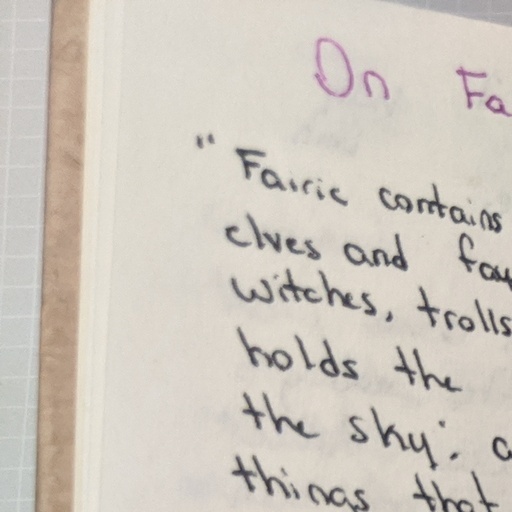 On Fa
" Fairie contains
elves and fay
witches, trolls
holds the
the sky: a
things that